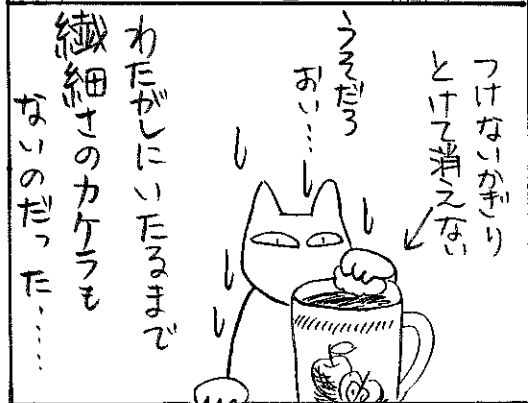 つけないかぎり
とけて消えない
うそだろ
おい…
わたがしにいたるまで
繊細さのカケラも
ないのだった……